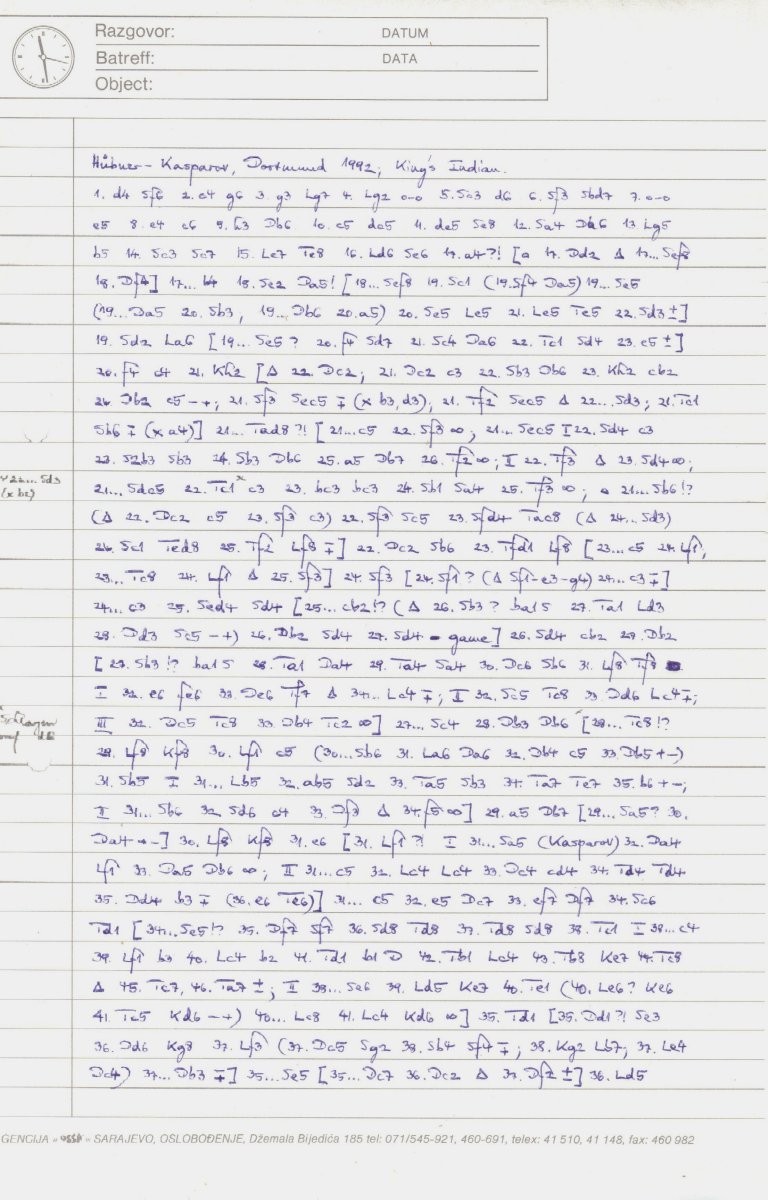 Razgovor: DATUM
Batreff: DATA
Object:
Hübner - Kasparov, Dortmund 1992, King's Indian.
1. d4 Sf6 2. c4 g6 3. g3 Lg7 4. Lg2 0-0 5. Sc3 d6 6. Sf3 Sbd7 7. 0-0
e5 8. e4 c6 9. h3 Db6 10. c5 dc5 11. de5 Se8 12. Sa4 Da6 13 Lg5
b5 14. Sc3 Sc7 15. Le7 Te8 16. Ld6 Se6 17. a4?! [a 17. Dd2 Δ 17... Sef8
18. Df4] 17... b4 18. Se2 Da5! [18... Sef8 19. Sc1 (19. Sf4 Da5) 19... Se5
(19... Da5 20. Sb3, 19... Db6 20. a5) 20. Se5 Le5 21. Le5 Te5 22. Sd3 ±]
19. Sd2 La6 [19... Se5? 20. f4 Sd7 21. Sc4 Da6 22. Tc1 Sd4 23. e5 ±]
20. f4 c4 21. Kh2 [Δ 22. Dc2; 21. Dc2 c3 22. Sb3 Db6 23. Kh2 cb2
24 Db2 c5 -+; 21. Sf3 Sec5 ∓ (x b3, d3), 21. Tf2 Sec5 Δ 22... Sd3; 21. Tc1
Sb6 ∓ (x a4)] 21... Tad8?! [21... c5 22. Sf3 ∞; 21... Sec5 I 22. Sd4 c3
23. S2b3 Sb3 24. Sb3 Db6 25. a5 Db7 26. Tf2 ∞; II 22. Tf3 Δ 23. Sd4 ∞;
21... Sdc5 22. Tc1 c3 23. bc3 bc3 24. Sb1 Sa4 25. Tf3 ∞; a 21... Sb6!?
(Δ 22. Dc2 c5 23. Sf3 c3) 22. Sf3 Sc5 23. Sfd4 Tac8 (Δ 24... Sd3)
24. Sc1 Ted8 25. Tf2 Lf8 ∓] 22. Dc2 Sb6 23. Tfd1 Lf8 [23... c5 24. Lf1,
23... Tc8 24. Lf1 Δ 25. Sf3] 24. Sf3 [24. Sf1? (Δ Sf1-e3-g4) 24... c3 ∓]
24... c3 25. Sed4 Sd4 [25... cb2!? (Δ 26. Sb3? ba1S 27. Ta1 Ld3
28. Dd3 Sc5 -+) 26. Db2 Sd4 27. Sd4 - game] 26. Sd4 cb2 27. Db2
[27. Sb3!? ba1S 28. Ta1 Da4 29. Ta4 Sa4 30. Dc6 Sb6 31. Lf8 Tf8
I 32. e6 fe6 33. De6 Tf7 Δ 34... Lc4 ∓; II 32. Sc5 Tc8 33. Dd6 Lc4 ∓;
III 32. Dc5 Tc8 33. Db4 Tc2 ∞] 27... Sc4 28. Db3 Db6 [28... Tc8!?
29. Lf8 Kf8 30. Lf1 c5 (30... Sb6 31. La6 Da6 32. Db4 c5 33. Db5 +-)
31. Sb5 I 31... Lb5 32. ab5 Sd2 33. Ta5 Sb3 34. Ta7 Te7 35. b6 +-;
II 31... Sb6 32 Sd6 c4 33. Df3 Δ 34. f5 ∞] 29. a5 Db7 [29... Sa5? 30.
Da4 +-] 30. Lf8 Kf8 31. e6 [31. Lf1?! I 31... Sa5 (Kasparov) 32. Da4
Lf1 33. Da5 Db6 ∞; II 31... c5 32. Lc4 Lc4 33. Dc4 cd4 34. Td4 Td4
35. Dd4 b3 ∓ (36. e6 Te6)] 31... c5 32. e5 Dc7 33. ef7 Df7 34. Sc6
Td1 [34... Se5!? 35. Df7 Sf7 36. Sd8 Td8 37. Td8 Sd8 38. Tc1 I 38... c4
39. Lf1 b3 40. Lc4 b2 41. Td1 b1 D 42. Tb1 Lc4 43. Tb8 Ke7 44. Tc8
Δ 45. Tc7, 46. Ta7 ±; II 38... Se6 39. Ld5 Ke7 40. Te1 (40. Le6? Ke6
41. Tc5 Kd6 -+) 40... Lc8 41. Lc4 Kd6 ∞] 35. Td1 [35. Dd1?! Se3
36. Dd6 Kg8 37. Lf3 (37. Dc5 Sg2 38. Sb4 Sf4 ∓; 38. Kg2 Lb7; 37. Le4
Dc4) 37... Db3 ∓] 35... Se5 [35... Dc7 36. Dc2 Δ 37. Df2 ±] 36. Ld5
22... Sd3
GENCIJA « OSSA » SARAJEVO, OSLOBOĐENJE, Džemala Bijedića 185 tel: 071/545-921, 460-691, telex: 41 510, 41 148, fax: 460 982